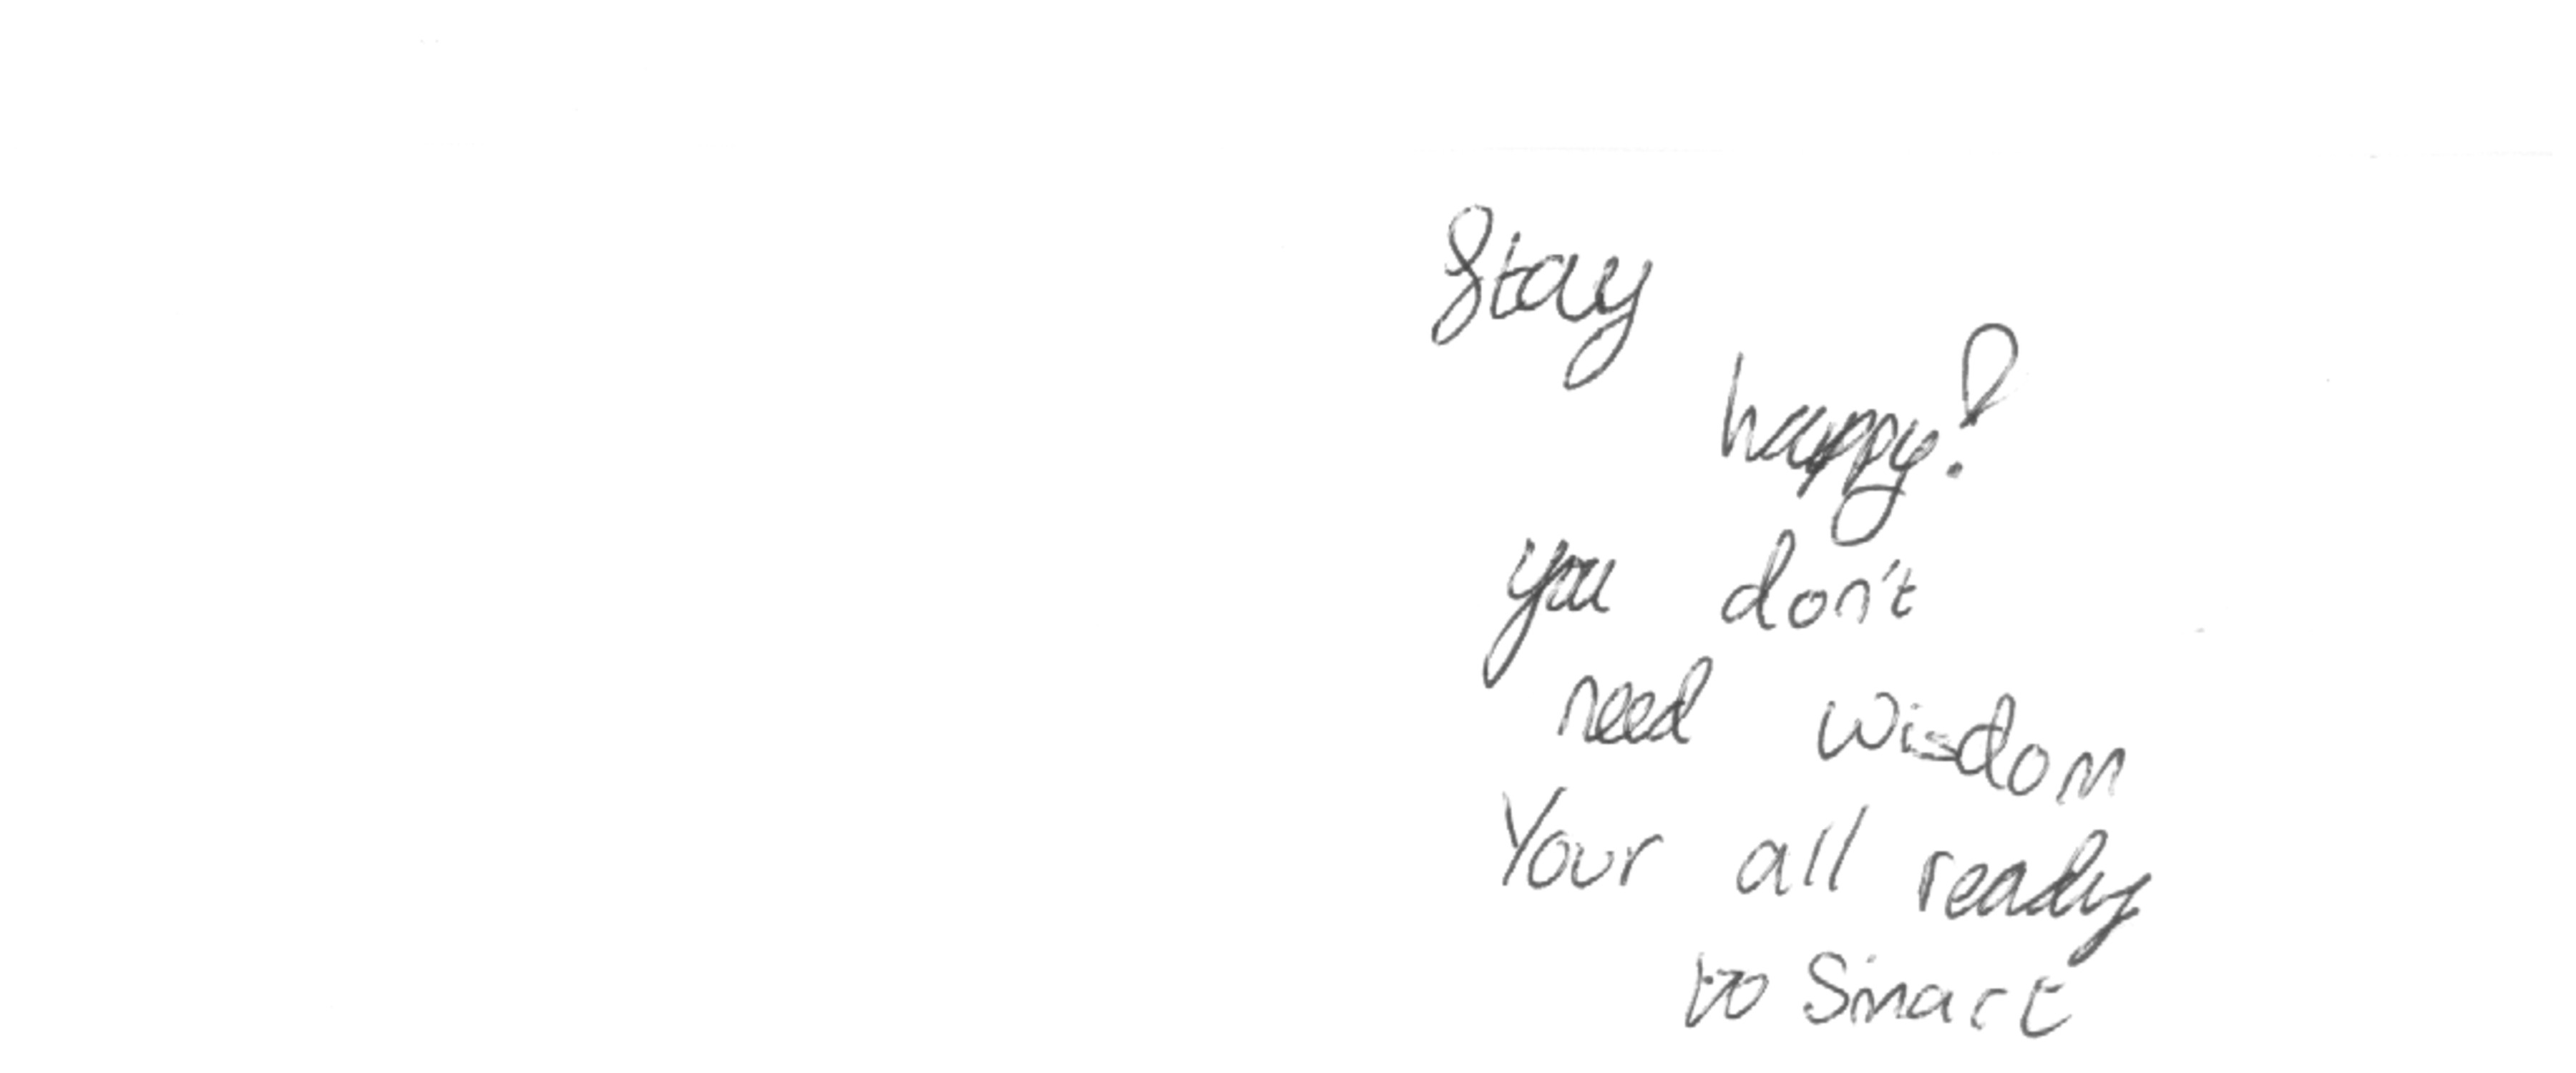 Stay
happy!
you don't
need wisdom
Your all ready
to Smart